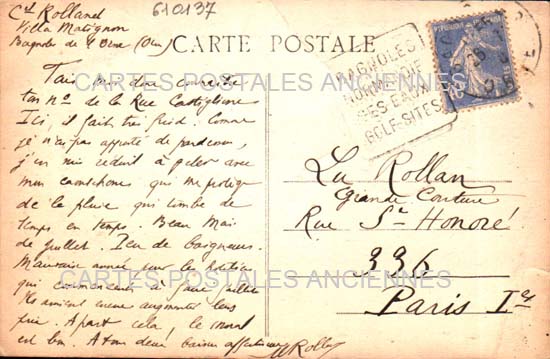 Ct Rolland
Villa Matignon
Bagnoles de l'Orne (Orne)
610137
CARTE POSTALE
BAGNOLES
NORMANDIE
SES EAUX
GOLF-SITES
CARTES POSTALES ANCIENNES
de la Rue Castiglione
Ici, il fait très froid. Comme
je n'ai pas apporté de pardessus,
j'en suis réduit à geler avec
mon caoutchouc qui me protège
de la pluie qui tombe de
temps en temps. Beau mois
de juillet. Peu de baigneurs.
Mauvaise année pour la station
qui commence à faire
augmenter leurs
prix. A part cela, le moral
est bon. A toi deux baisers affectueux
Rolland
La Rollan
Grande Couture
Rue St Honoré
336
CARTES POSTALES ANCIENNES
Paris Ier